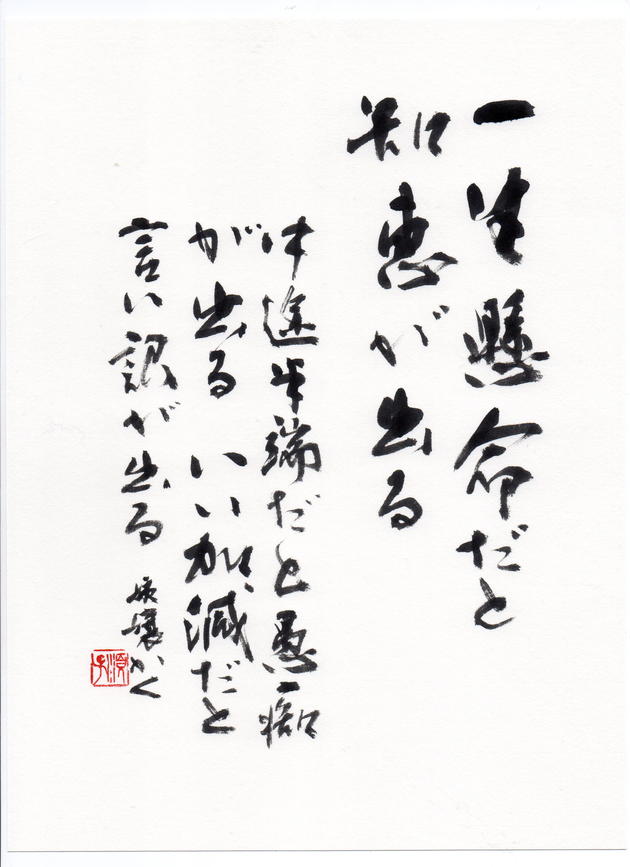 一生懸命だと
知恵が出る
中途半端だと愚痴
が出る いい加減だと
言い訳が出る
かく